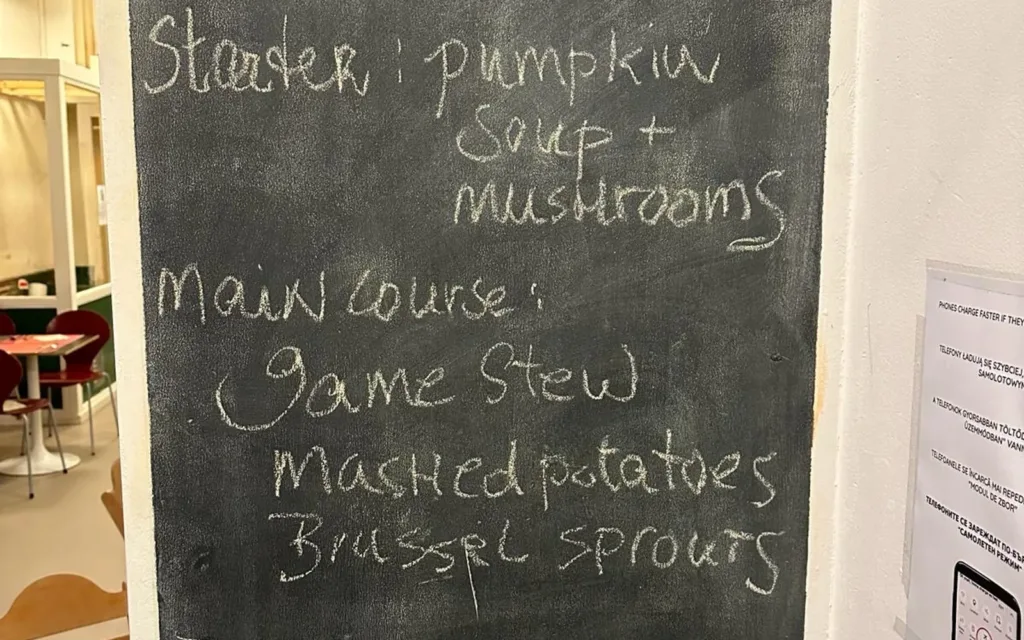 Starter : pumpkin
Soup +
mushrooms
Main course :
game stew
Mashed potatoes
Brussel sprouts
PHONES CHARGE FASTER IF THEY
TELEFONY ŁADUJĄ SIĘ SZYBCIEJ,
SAMOLOTOWYM
A TELEFONOK GYORSABBAN TÖLTŐD
ÜZEMMÓDBAN" VANN
TELEFOANELE SE ÎNCARCĂ MAI REPED
"MODUL DE ZBOR"
ТЕЛЕФОНИТЕ СЕ ЗАРЕЖДАТ ПО-БЪР
"САМОЛЕТЕН РЕЖИМ"